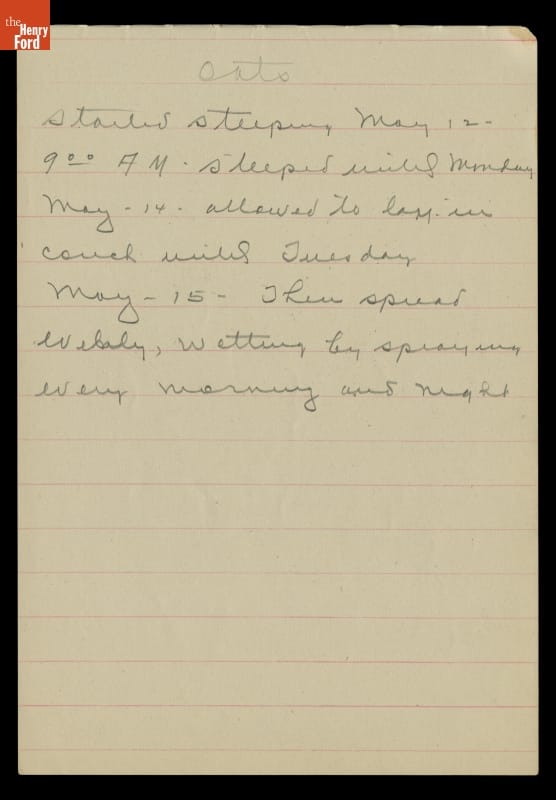 the
Henry
Ford
Oats
Started steeping May 12-
9 00 A M. Steeped until Monday
May - 14 - allowed to lay in
couch until Tuesday
May - 15 - Then spread
evenly, wetting by spraying
every morning and night